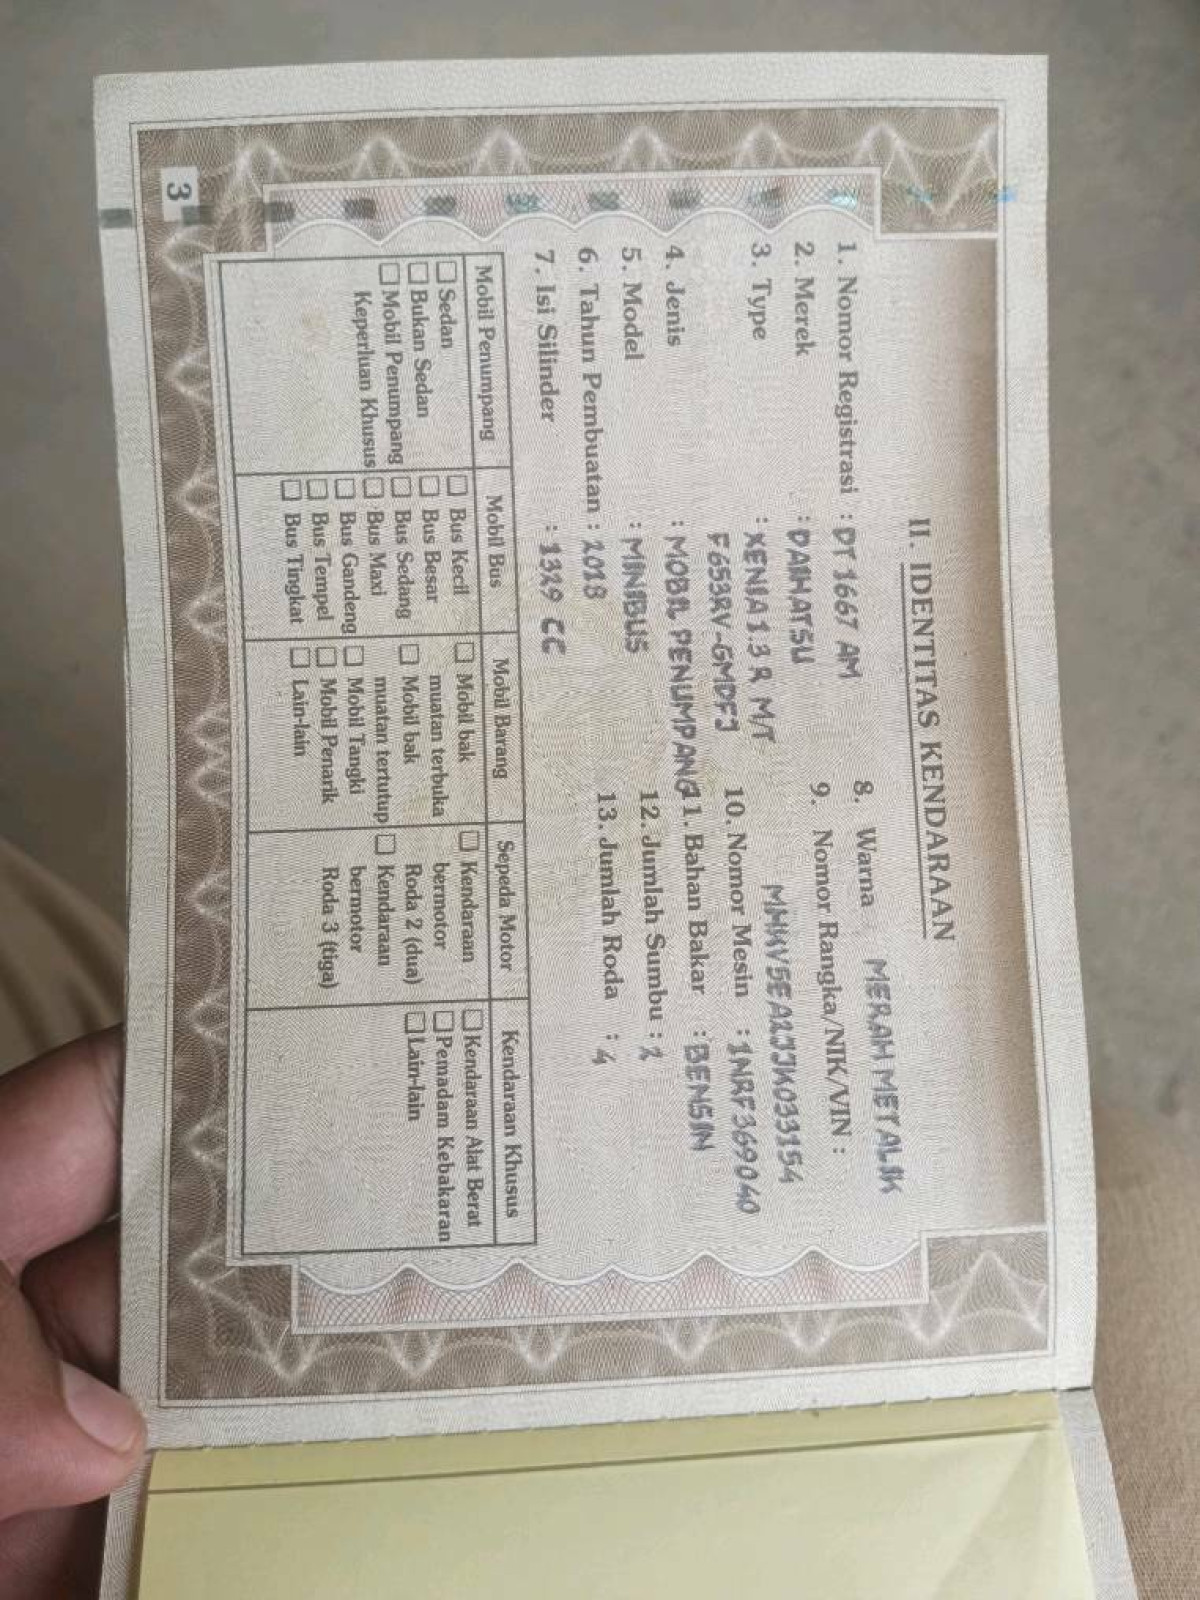 II. IDENTITAS KENDARAAN
1. Nomor Registrasi : DT 1667 AM
2. Merek : DAIHATSU
3. Type : XENIA 1.3 R M/T
F653RV-GMDFJ
4. Jenis : MOBIL PENUMPANG
5. Model : MINIBUS
6. Tahun Pembuatan : 2018
7. Isi Silinder : 1329 CC
8. Warna MERAH METALIK
9. Nomor Rangka/NIK/VIN :
MHKV5EA2JJK033154
10. Nomor Mesin : 1NRF369040
11. Bahan Bakar : BENSIN
12. Jumlah Sumbu : 2
13. Jumlah Roda : 4
Mobil Penumpang
Sedan
Bukan Sedan
Mobil Penumpang
Keperluan Khusus
Mobil Bus
Bus Kecil
Bus Besar
Bus Sedang
Bus Maxi
Bus Gandeng
Bus Tempel
Bus Tingkat
Mobil Barang
Mobil bak
muatan terbuka
Mobil bak
muatan tertutup
Mobil Tangki
Mobil Penarik
Lain-lain
Sepeda Motor
Kendaraan
bermotor
Roda 2 (dua)
Kendaraan
bermotor
Roda 3 (tiga)
Kendaraan Khusus
Kendaraan Alat Berat
Pemadam Kebakaran
Lain-lain
3